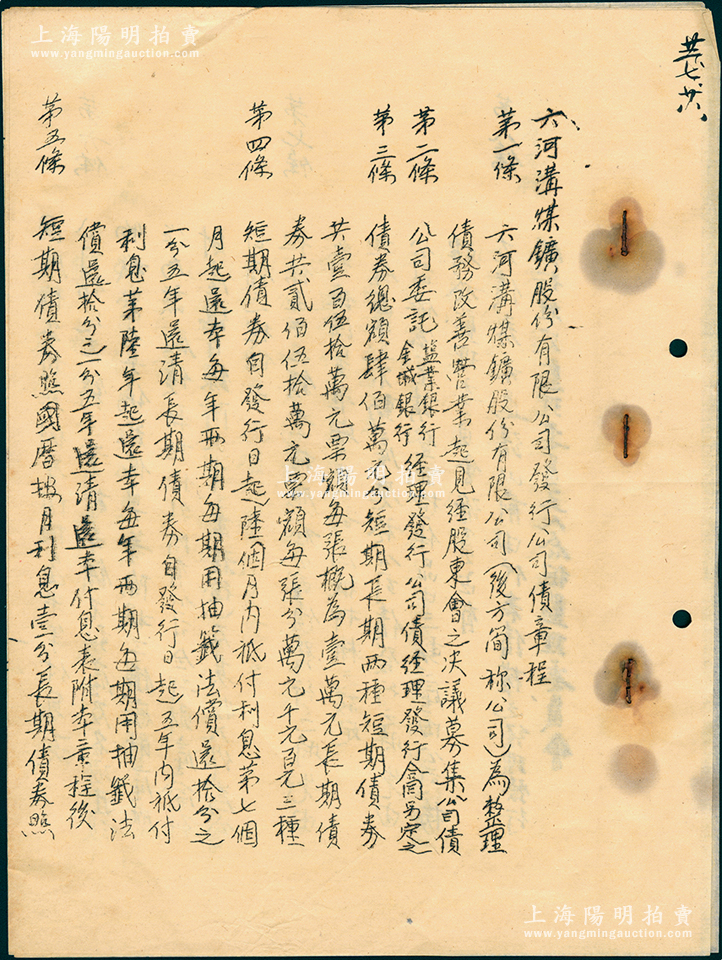 上海陽明拍賣
www.yangmingauction.com
六河溝煤鑛股份有限公司發行公司債章程
第一條 六河溝煤鑛股份有限公司(後方简称公司)為整理
債務改善營業起見經股東會之决議募集公司債
第二條 公司委託鹽業銀行金城銀行經理發行公司債經理發行合同另定之
第三條 債券總額肆佰萬元分短期長期两種短期債券
共壹百伍拾萬元票額每張概為壹萬元長期債
券共貳佰伍拾萬元票額每張分萬元千元百元三種
第四條 短期債券自發行日起陸個月内祗付利息第七個
月起還本每年两期每期用抽籤法償還拾分之
一分五年還清長期債券自發行日起五年内祗付
利息第陸年起還本每年两期每期用抽籤法
償還拾分之一分五年還清還本付息表附本章程後
第五條 短期債券照國曆按月利息壹分長期債券照
上海陽明拍賣
www.yangmingauction.com
上海陽明拍賣
www.yangmingauction.com